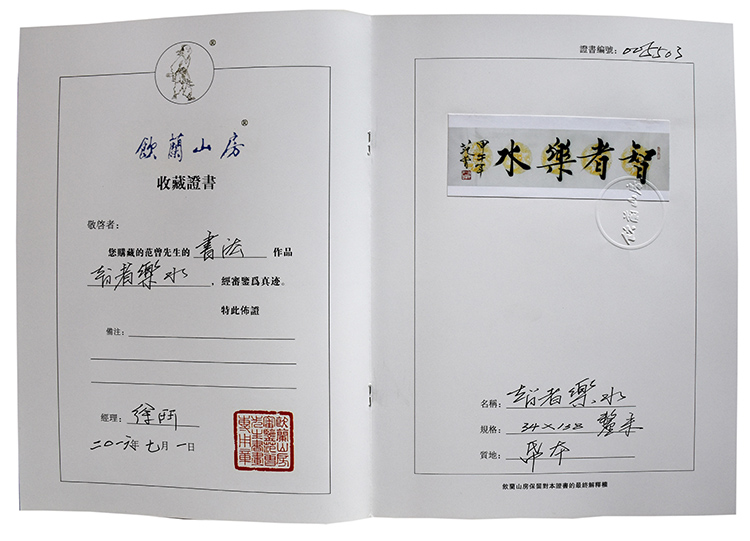 ®
飲蘭山房®
收藏證書
敬啓者：
您購藏的范曾先生的 書法 作品
智者樂水 ，經審鑒爲真迹。
特此佈證
備注：
經理：徐鬥
二〇一六年七月1日
飲蘭山房
審鑒范曾
先生書畫
專用章
證書編號：005503
智者樂水
甲午年
范曾
飲蘭山房
名稱：智者樂水
規格：34×138 釐米
質地：紙本
飲蘭山房保留對本證書的最終解釋權